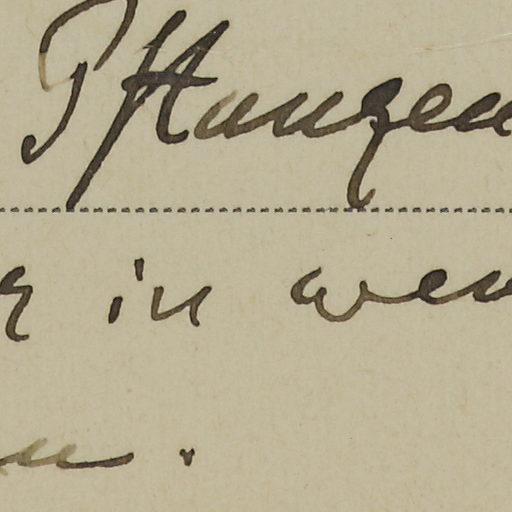 Pflanzen
r in wen
en.